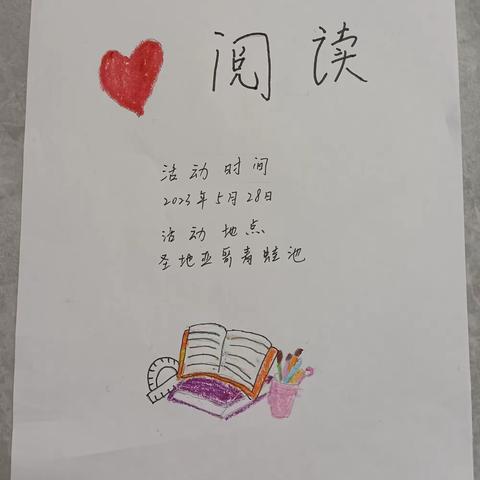 阅读
活动时间
2023年5月28日
活动地点
圣地亚哥青蛙池